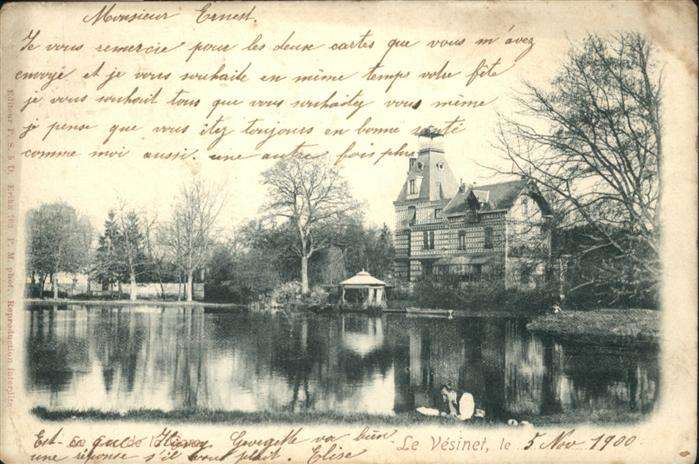 Monsieur Ernest.
Je vous remercie pour les deux cartes que vous m'avez
envoyé et je vous souhaite en même temps votre fête
je vous souhait tous que vous souhaitez vous même
je pense que vous itez toujours en bonne santé
comme moi aussi. une autre fois plus
Est-ce que Georgette va bien
une réponse s'il vous plait. Elise
Le Vésinet, le 5 Nov 1900
Reproduction interdite